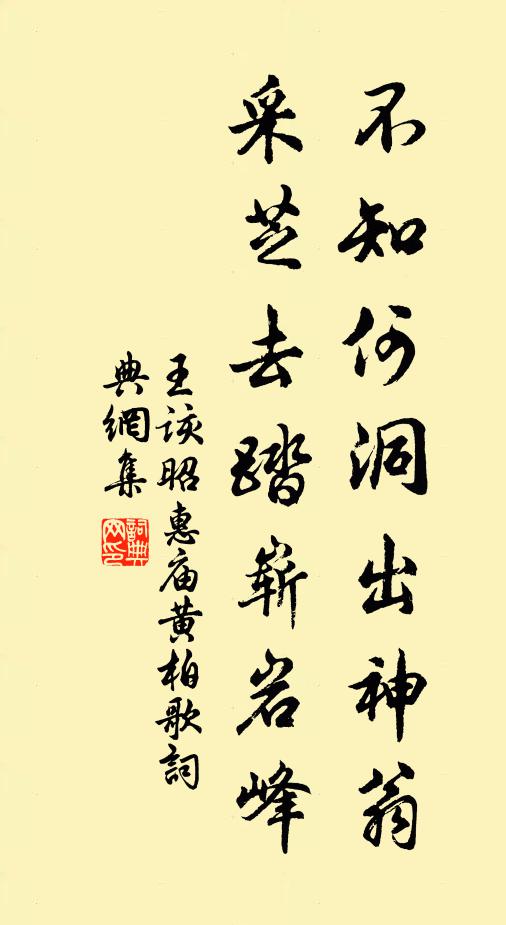 不知何洞出神翁
采芝去踏崭岩峰
王该昭惠庙黄柏歌詞
典網集
詞典網印